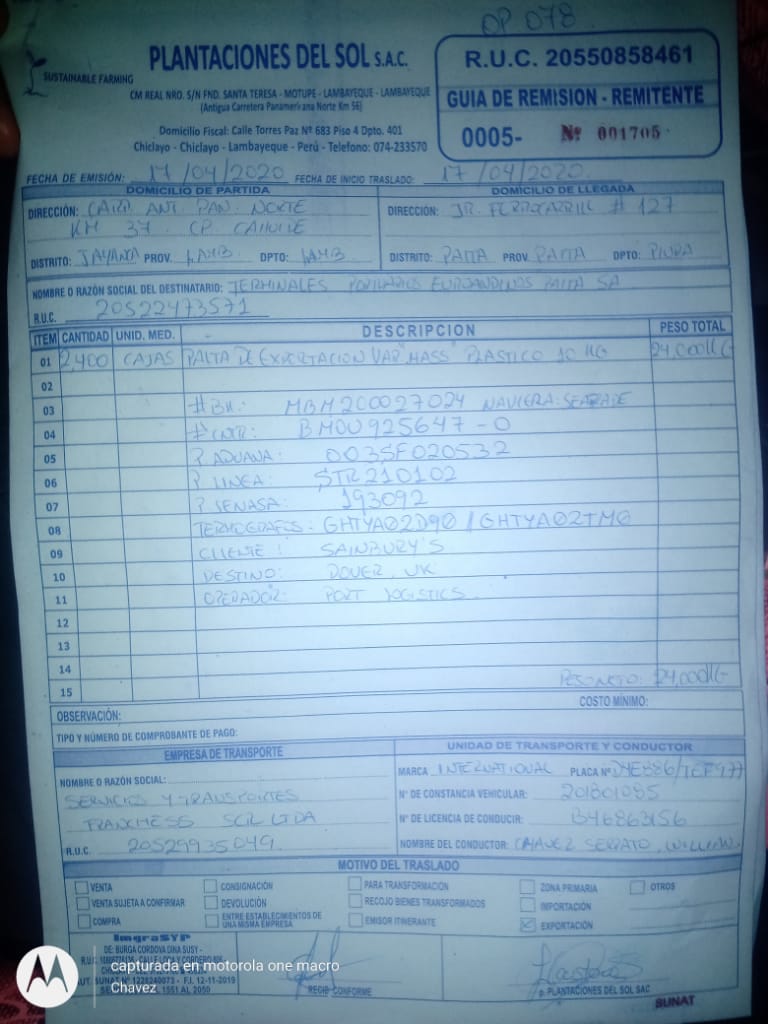 OP 078
PLANTACIONES DEL SOL S.A.C.
SUSTAINABLE FARMING
CM REAL NRO. S/N FND. SANTA TERESA - MOTUPE - LAMBAYEQUE - LAMBAYEQUE
(Antigua Carretera Panamericana Norte Km 56)
Domicilio Fiscal: Calle Torres Paz Nº 683 Piso 4 Dpto. 401
Chiclayo - Chiclayo - Lambayeque - Perú - Telefono: 074-233570
R.U.C. 20550858461
GUIA DE REMISION - REMITENTE
0005- Nº 001705
FECHA DE EMISIÓN: 17/04/2020 FECHA DE INICIO TRASLADO: 17/04/2020
DOMICILIO DE PARTIDA
DIRECCIÓN: CARR. ANT. PAN. NORTE
KM 37 CP.
DISTRITO: JAYANCA PROV. LAMB. DPTO: LAMB.
DOMICILIO DE LLEGADA
DIRECCIÓN: JR. FERROCARRIL # 127
DISTRITO: PAITA PROV. PAITA DPTO: PIURA
NOMBRE O RAZÓN SOCIAL DEL DESTINATARIO: TERMINALES PORTUARIOS EUROANDINOS PAITA SA
R.U.C. 20522473571
ITEM CANTIDAD UNID. MED. DESCRIPCION PESO TOTAL
01 2,400 CAJAS PALTA DE EXPORTACION VAR "HASS" PLASTICO 10 KG 24,000KG
02
03 #BK: MBM200027024 NAVIERA:
04 #CNTR: BMOU925647-0
05 P. ADUANA: 003SF020532
06 P. LINEA: STR210102
07 P. SENASA: 193092
08 TERMOGRAFOS: GHTYA02D90 / GHTYA02TMG
09 CLIENTE: SAINBURY'S
10 DESTINO: DOVER, UK
11 OPERADOR: PORT LOGISTICS
12
13
14
15 PESO NETO: 24,000KG
OBSERVACIÓN: COSTO MÍNIMO:
TIPO Y NÚMERO DE COMPROBANTE DE PAGO:
EMPRESA DE TRANSPORTE
NOMBRE O RAZÓN SOCIAL:
SERVICIOS Y TRANSPORTES
FRANCHESS SCR LTDA
R.U.C. 20529935049
UNIDAD DE TRANSPORTE Y CONDUCTOR
MARCA INTERNATIONAL PLACA Nº D4E886/TCF977
Nº DE CONSTANCIA VEHICULAR: 201801085
Nº DE LICENCIA DE CONDUCIR: B46863156
NOMBRE DEL CONDUCTOR: CHAVEZ SERRATO, WILLIAM
MOTIVO DEL TRASLADO
VENTA CONSIGNACIÓN PARA TRANSFORMACIÓN ZONA PRIMARIA OTROS
VENTA SUJETA A CONFIRMAR DEVOLUCIÓN RECOJO BIENES TRANSFORMADOS IMPORTACIÓN
COMPRA ENTRE ESTABLECIMIENTOS DE UNA MISMA EMPRESA EMISOR ITINERANTE EXPORTACIÓN
ImgraSYP
DE: BURGA CORDOVA DINA SUSY -
AUT. SUNAT Nº 1228240073 - F.I. 12-11-2019
1551 AL 2050
RECIBI CONFORME
p. PLANTACIONES DEL SOL SAC
SUNAT
capturada en motorola one macro
Chavez